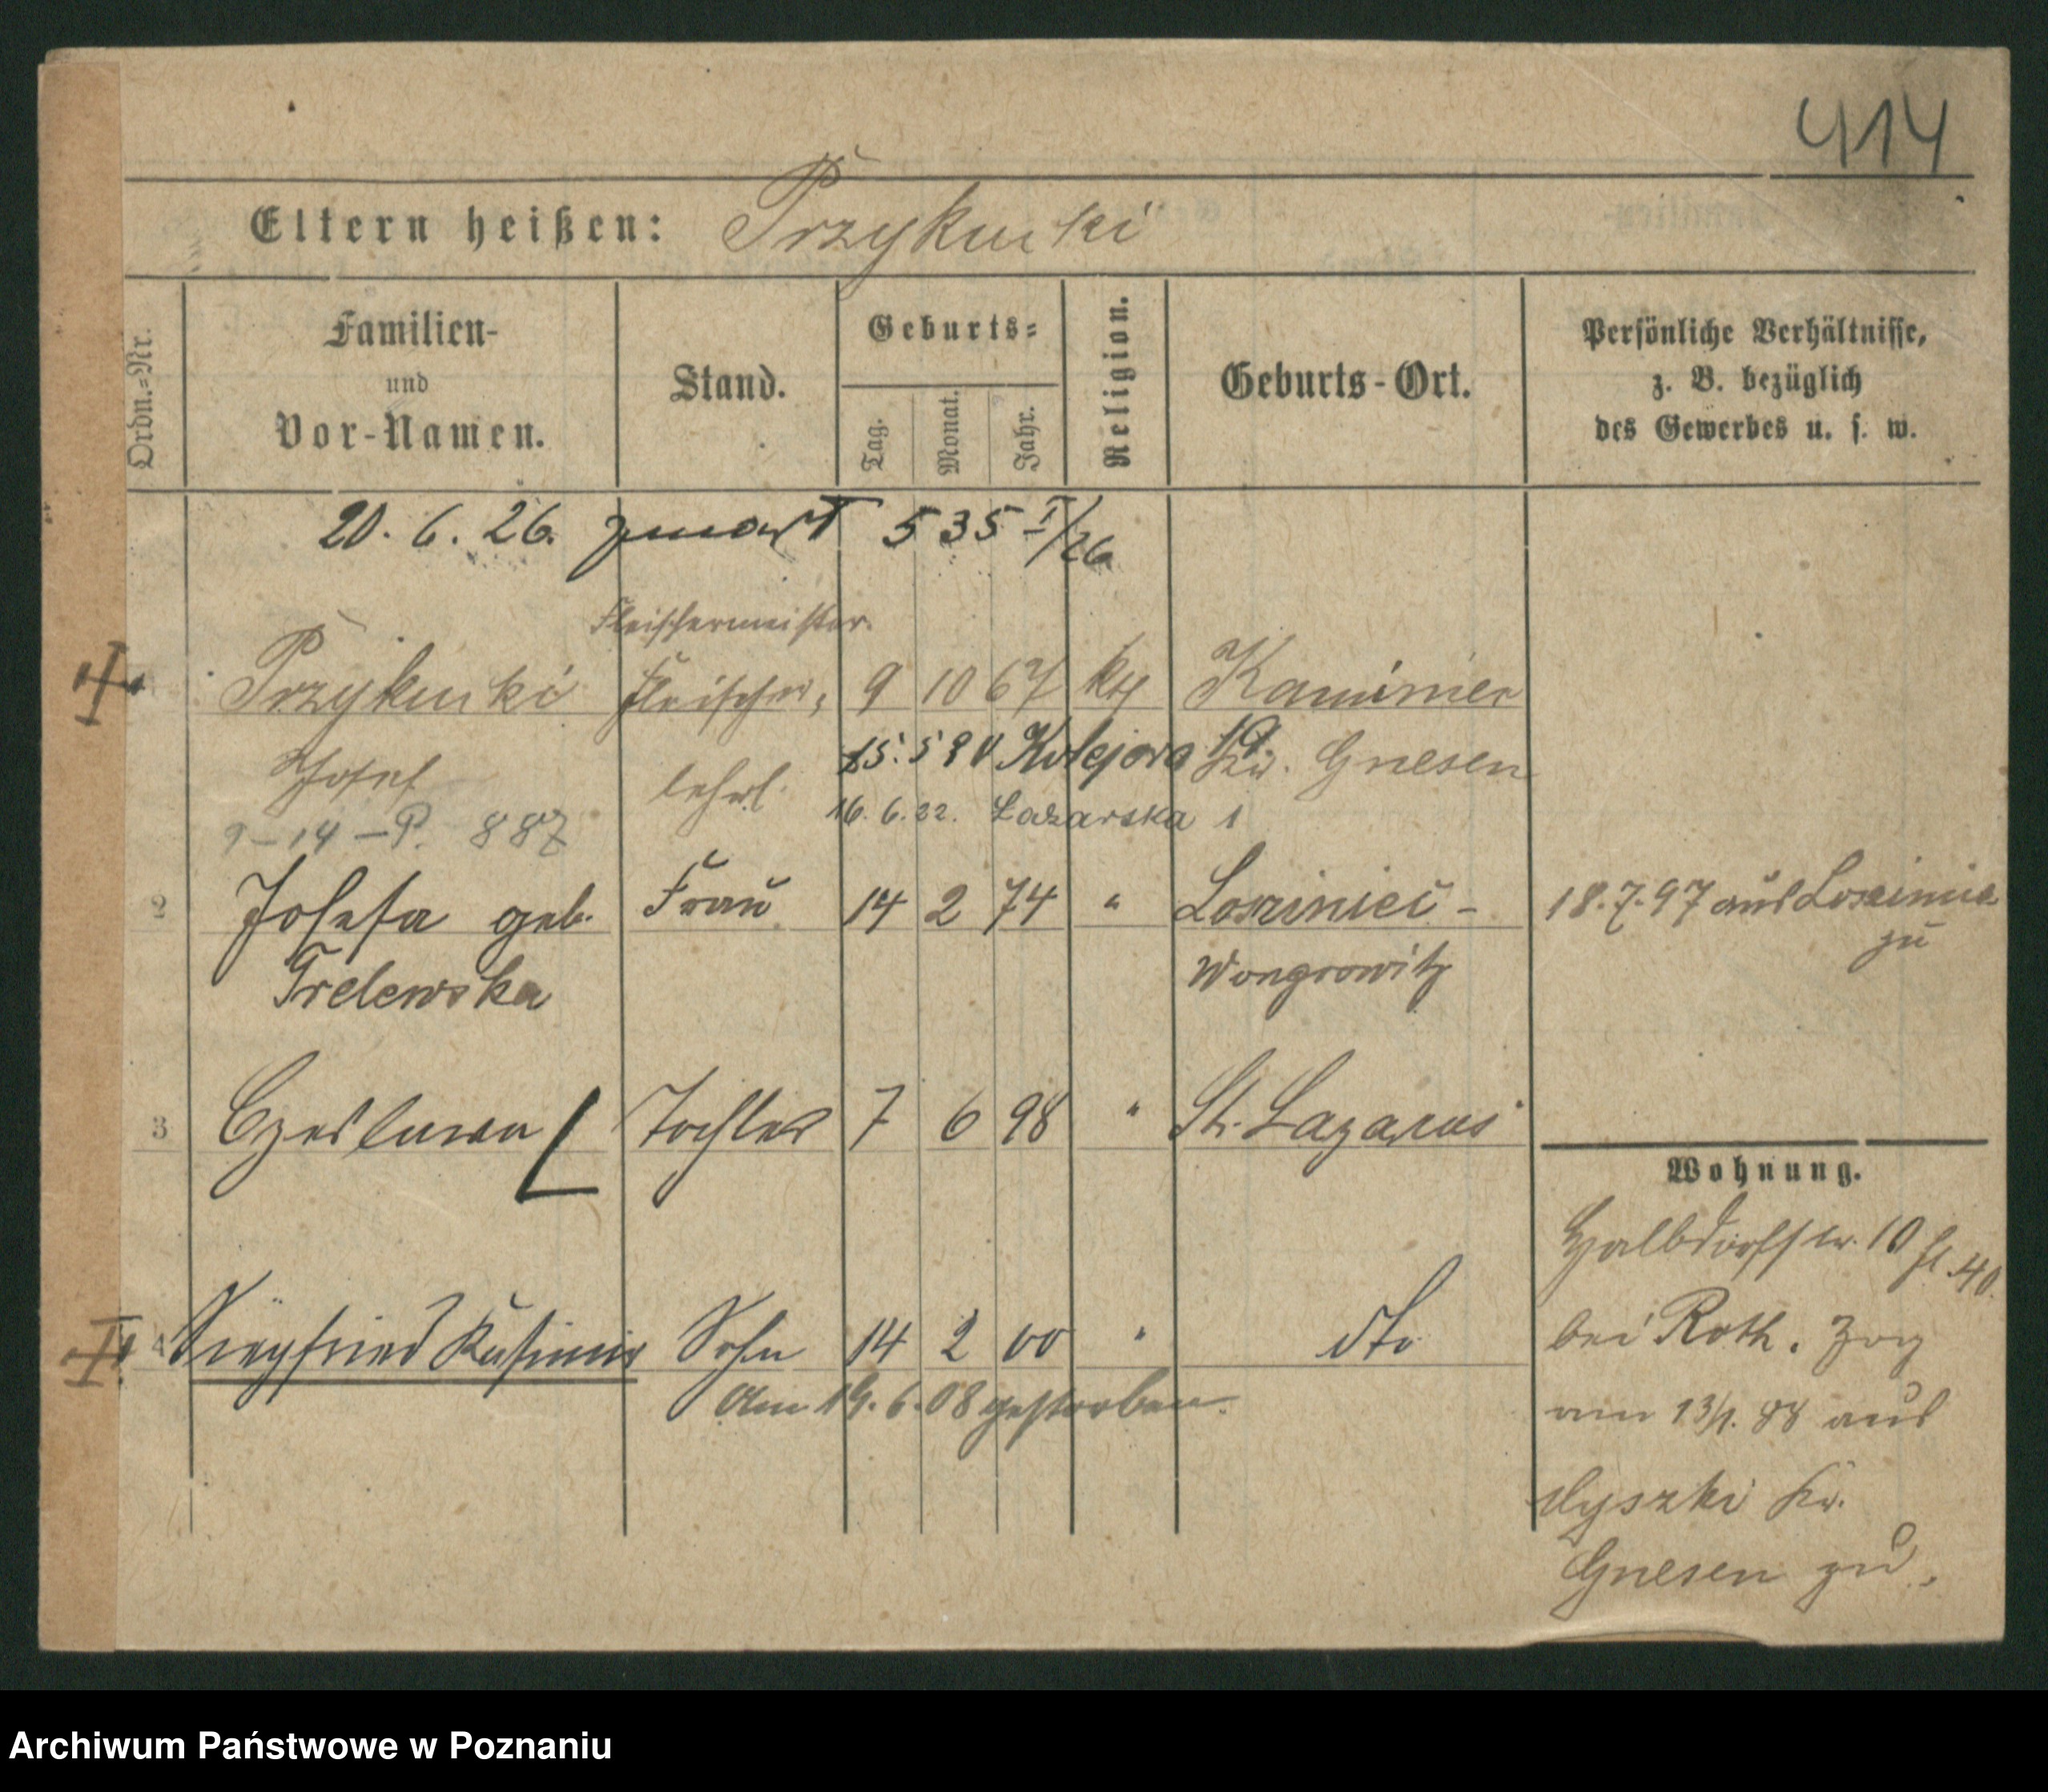 414
Eltern heißen: Przykucki
Ordn.=Nr.
Familien- und Vor-Namen.
Stand.
Geburts=
Tag.
Monat.
Jahr.
Religion.
Geburts-Ort.
Persönliche Verhältnisse,
z. B. bezüglich
des Gewerbes u. s. w.
20. 6. 26. zmarł 535 I/26
Fleischermeister.
Przykucki Fleischer, 9 10 67 kth Kaminiec
Josef lehrl. 15. 5 Kolejowa 19 Kr. Gnesen
16. 6. 22. Łazarska 1
9-14-P. 887
2 Josefa geb. Frau 14 2 74 " Losziniec - 18. 7. 97 aus
Trelewska Wongrowitz zu
3 Czeslawa Tochter 7 6 98 " St. Lazarus
Wohnung.
4 Siegfried Kasimir Sohn 14 2 00 " dto
Am 19. 6. 08 gestorben.
Halbdorfstr. 10
bei Roth. Zog
am 13/1. 88 aus
Kr.
Gnesen zu.
Archiwum Państwowe w Poznaniu